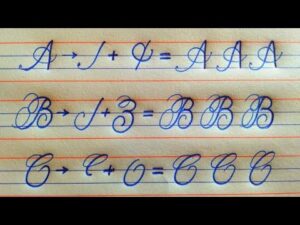 A → / + ¢ = A A A
B → / + 3 = B B B
C → C + O = C C C